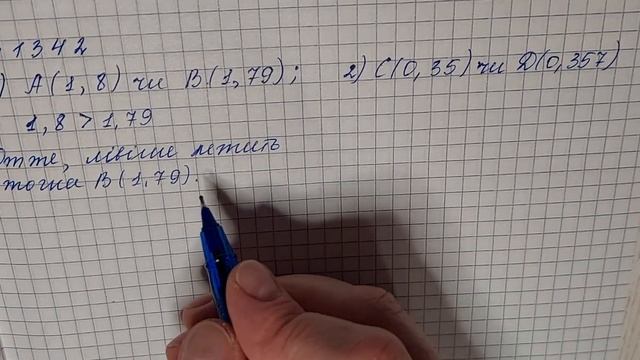 1342
) A(1,8) чи B(1,79); 2) C(0,35) чи D(0,357)
1,8 > 1,79
Отже, лівіше лежить
точка B(1,79).